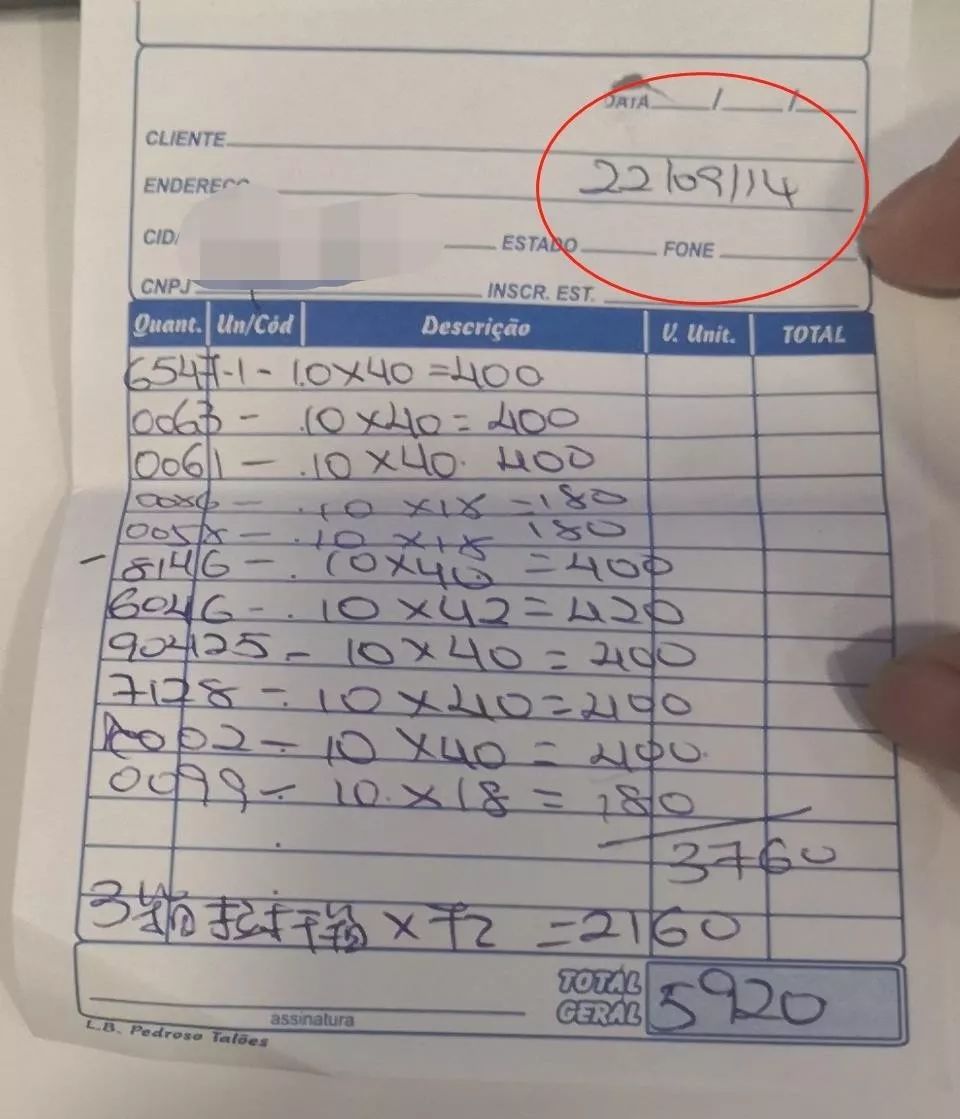 DATA / /
CLIENTE
22/09/14
ENDEREÇO
CID ESTADO FONE
CNPJ INSCR. EST.
Quant. Un/Cód Descrição V. Unit. TOTAL
6547-1 - 10×40=400
0063 - 10×40=400
0061 - 10×40 400
10×18=180
0058 - 10×18 180
8146 - 10×40=400
6046 - 10×42=420
904125 - 10×40=400
7128 - 10×40=400
0002 - 10×40=400
0099 - 10×18=180
3760
3箱 × 72 =2160
TOTAL GERAL 5920
assinatura
L.B. Pedroso Talões